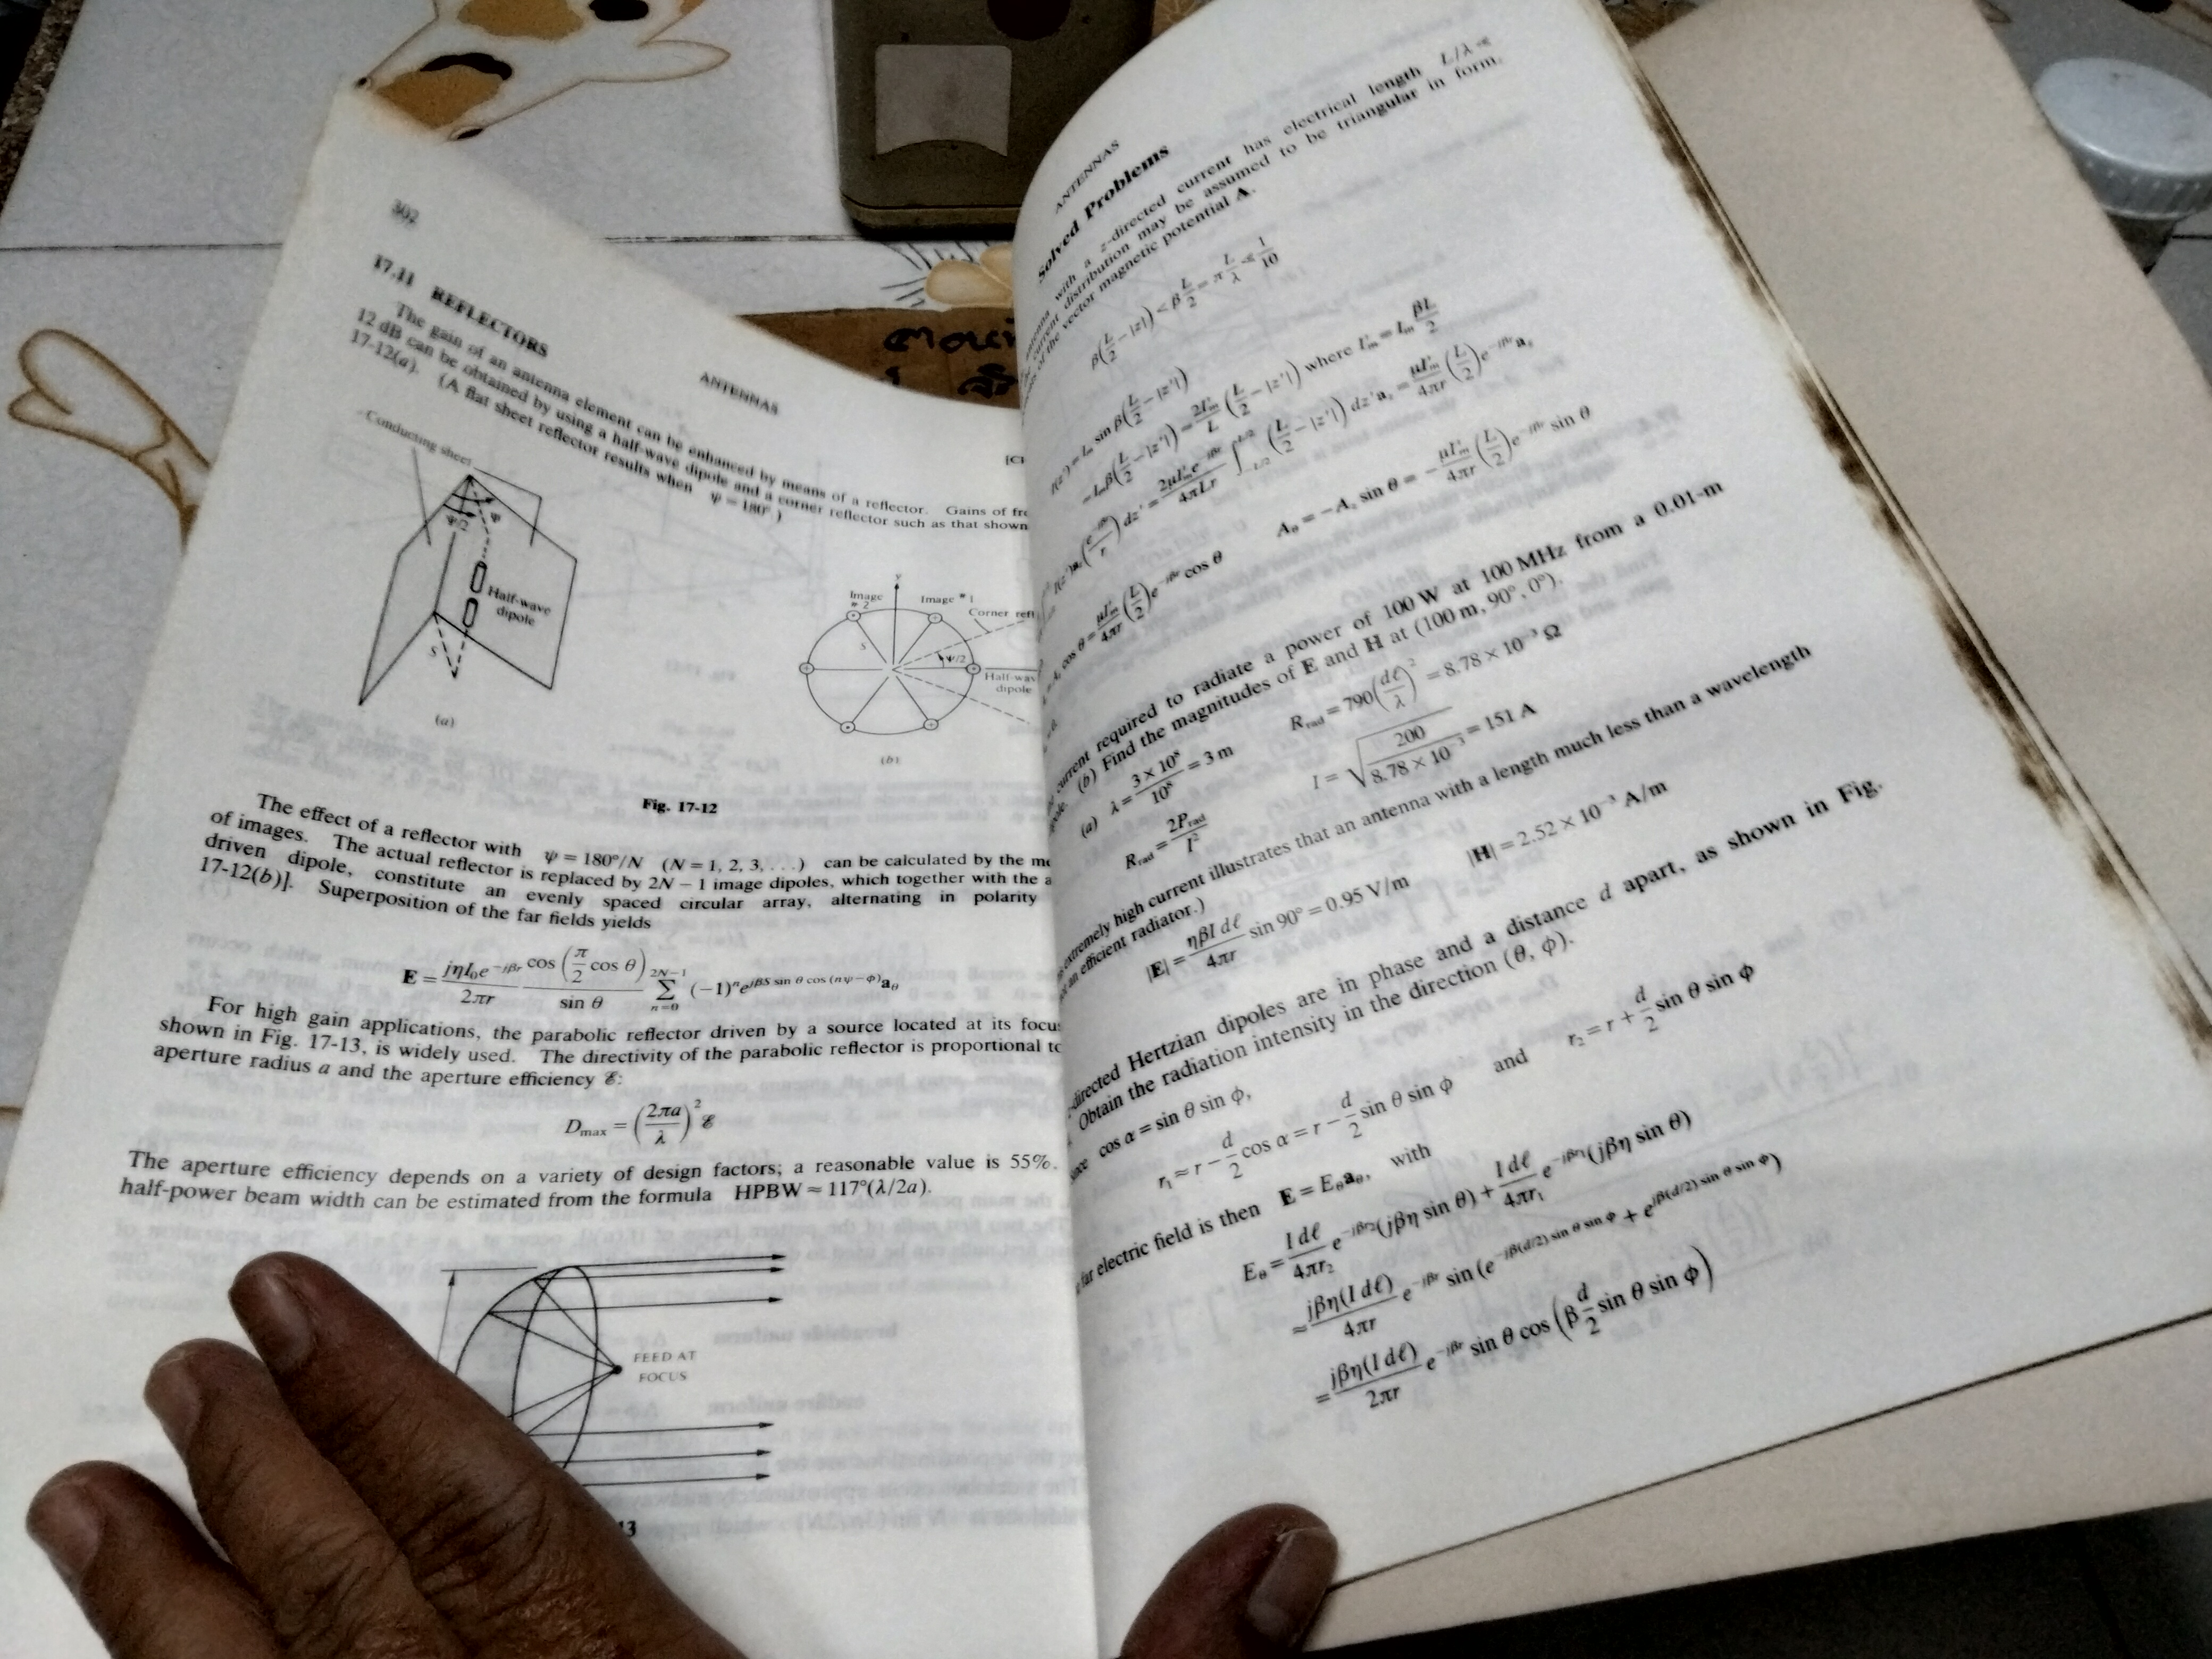 302
ANTENNAS
17.11 REFLECTORS
The gain of an antenna element can be enhanced by means of a reflector. Gains of
12 dB can be obtained by using a half-wave dipole and a corner reflector such as that shown
17-12(a). (A flat sheet reflector results when ψ = 180°)
Conducting sheet
ψ/2
Half-wave
dipole
S
(a)
y
Image
# 2
Image # 1
Corner
S
ψ/2
dipole
(b)
Fig. 17-12
The effect of a reflector with ψ = 180°/N (N = 1, 2, 3, . . .) can be calculated by the
of images. The actual reflector is replaced by 2N − 1 image dipoles, which together with the
driven dipole, constitute an evenly spaced circular array, alternating in polarity
17-12(b)]. Superposition of the far fields yields
E = jηI₀e^−jβr / 2πr cos (π/2 cos θ) / sin θ Σ_{n=0}^{2N−1} (−1)ⁿe^{jβS sin θ cos (nψ−φ)}a_θ
For high gain applications, the parabolic reflector driven by a source located at its
shown in Fig. 17-13, is widely used. The directivity of the parabolic reflector is proportional
aperture radius a and the aperture efficiency ℰ:
D_max = (2πa/λ)² ℰ
The aperture efficiency depends on a variety of design factors; a reasonable value is 55%.
half-power beam width can be estimated from the formula HPBW ≈ 117°(λ/2a).
FEED AT
FOCUS
13
ANTENNAS
Solved Problems
with a z-directed current has electrical length L/λ
current distribution may be assumed to be triangular in form.
of the vector magnetic potential A.
β(L/2 − |z'|) < β L/2 = π L/λ ≪ 1/10
I(z') = I_m sin β(L/2 − |z'|)
≈ I_m β(L/2 − |z'|) = 2I'_m/L (L/2 − |z'|) where I'_m = I_m βL/2
I(z')a_z (e^−jβr/r) dz' = 2μI'_m e^−jβr / 4πLr ∫_{−L/2}^{L/2} (L/2 − |z'|) dz' a_z = μI'_m/4πr (L/2) e^−jβr a_z
cos θ = μI'_m/4πr (L/2) e^−jβr cos θ A_θ = −A_z sin θ = −μI'_m/4πr (L/2) e^−jβr sin θ
current required to radiate a power of 100 W at 100 MHz from a 0.01-m
(b) Find the magnitudes of E and H at (100 m, 90°, 0°).
(a) λ = 3 × 10⁸/10⁸ = 3 m R_rad = 790(dℓ/λ)² = 8.78 × 10⁻³ Ω
R_rad = 2P_rad/I² I = √(200/8.78 × 10⁻³) = 151 A
extremely high current illustrates that an antenna with a length much less than a wavelength
an efficient radiator.)
|E| = ηβI dℓ/4πr sin 90° = 0.95 V/m |H| = 2.52 × 10⁻³ A/m
directed Hertzian dipoles are in phase and a distance d apart, as shown in Fig.
Obtain the radiation intensity in the direction (θ, φ).
cos α = sin θ sin φ,
r₁ ≈ r − d/2 cos α = r − d/2 sin θ sin φ and r₂ = r + d/2 sin θ sin φ
far electric field is then E = E_θ a_θ, with
E_θ = I dℓ/4πr₂ e^−jβr₂ (jβη sin θ) + I dℓ/4πr₁ e^−jβr₁ (jβη sin θ)
≈ jβη(I dℓ)/4πr e^−jβr sin (e^{−jβ(d/2) sin θ sin φ} + e^{jβ(d/2) sin θ sin φ})
= jβη(I dℓ)/2πr e^−jβr sin θ cos (β d/2 sin θ sin φ)